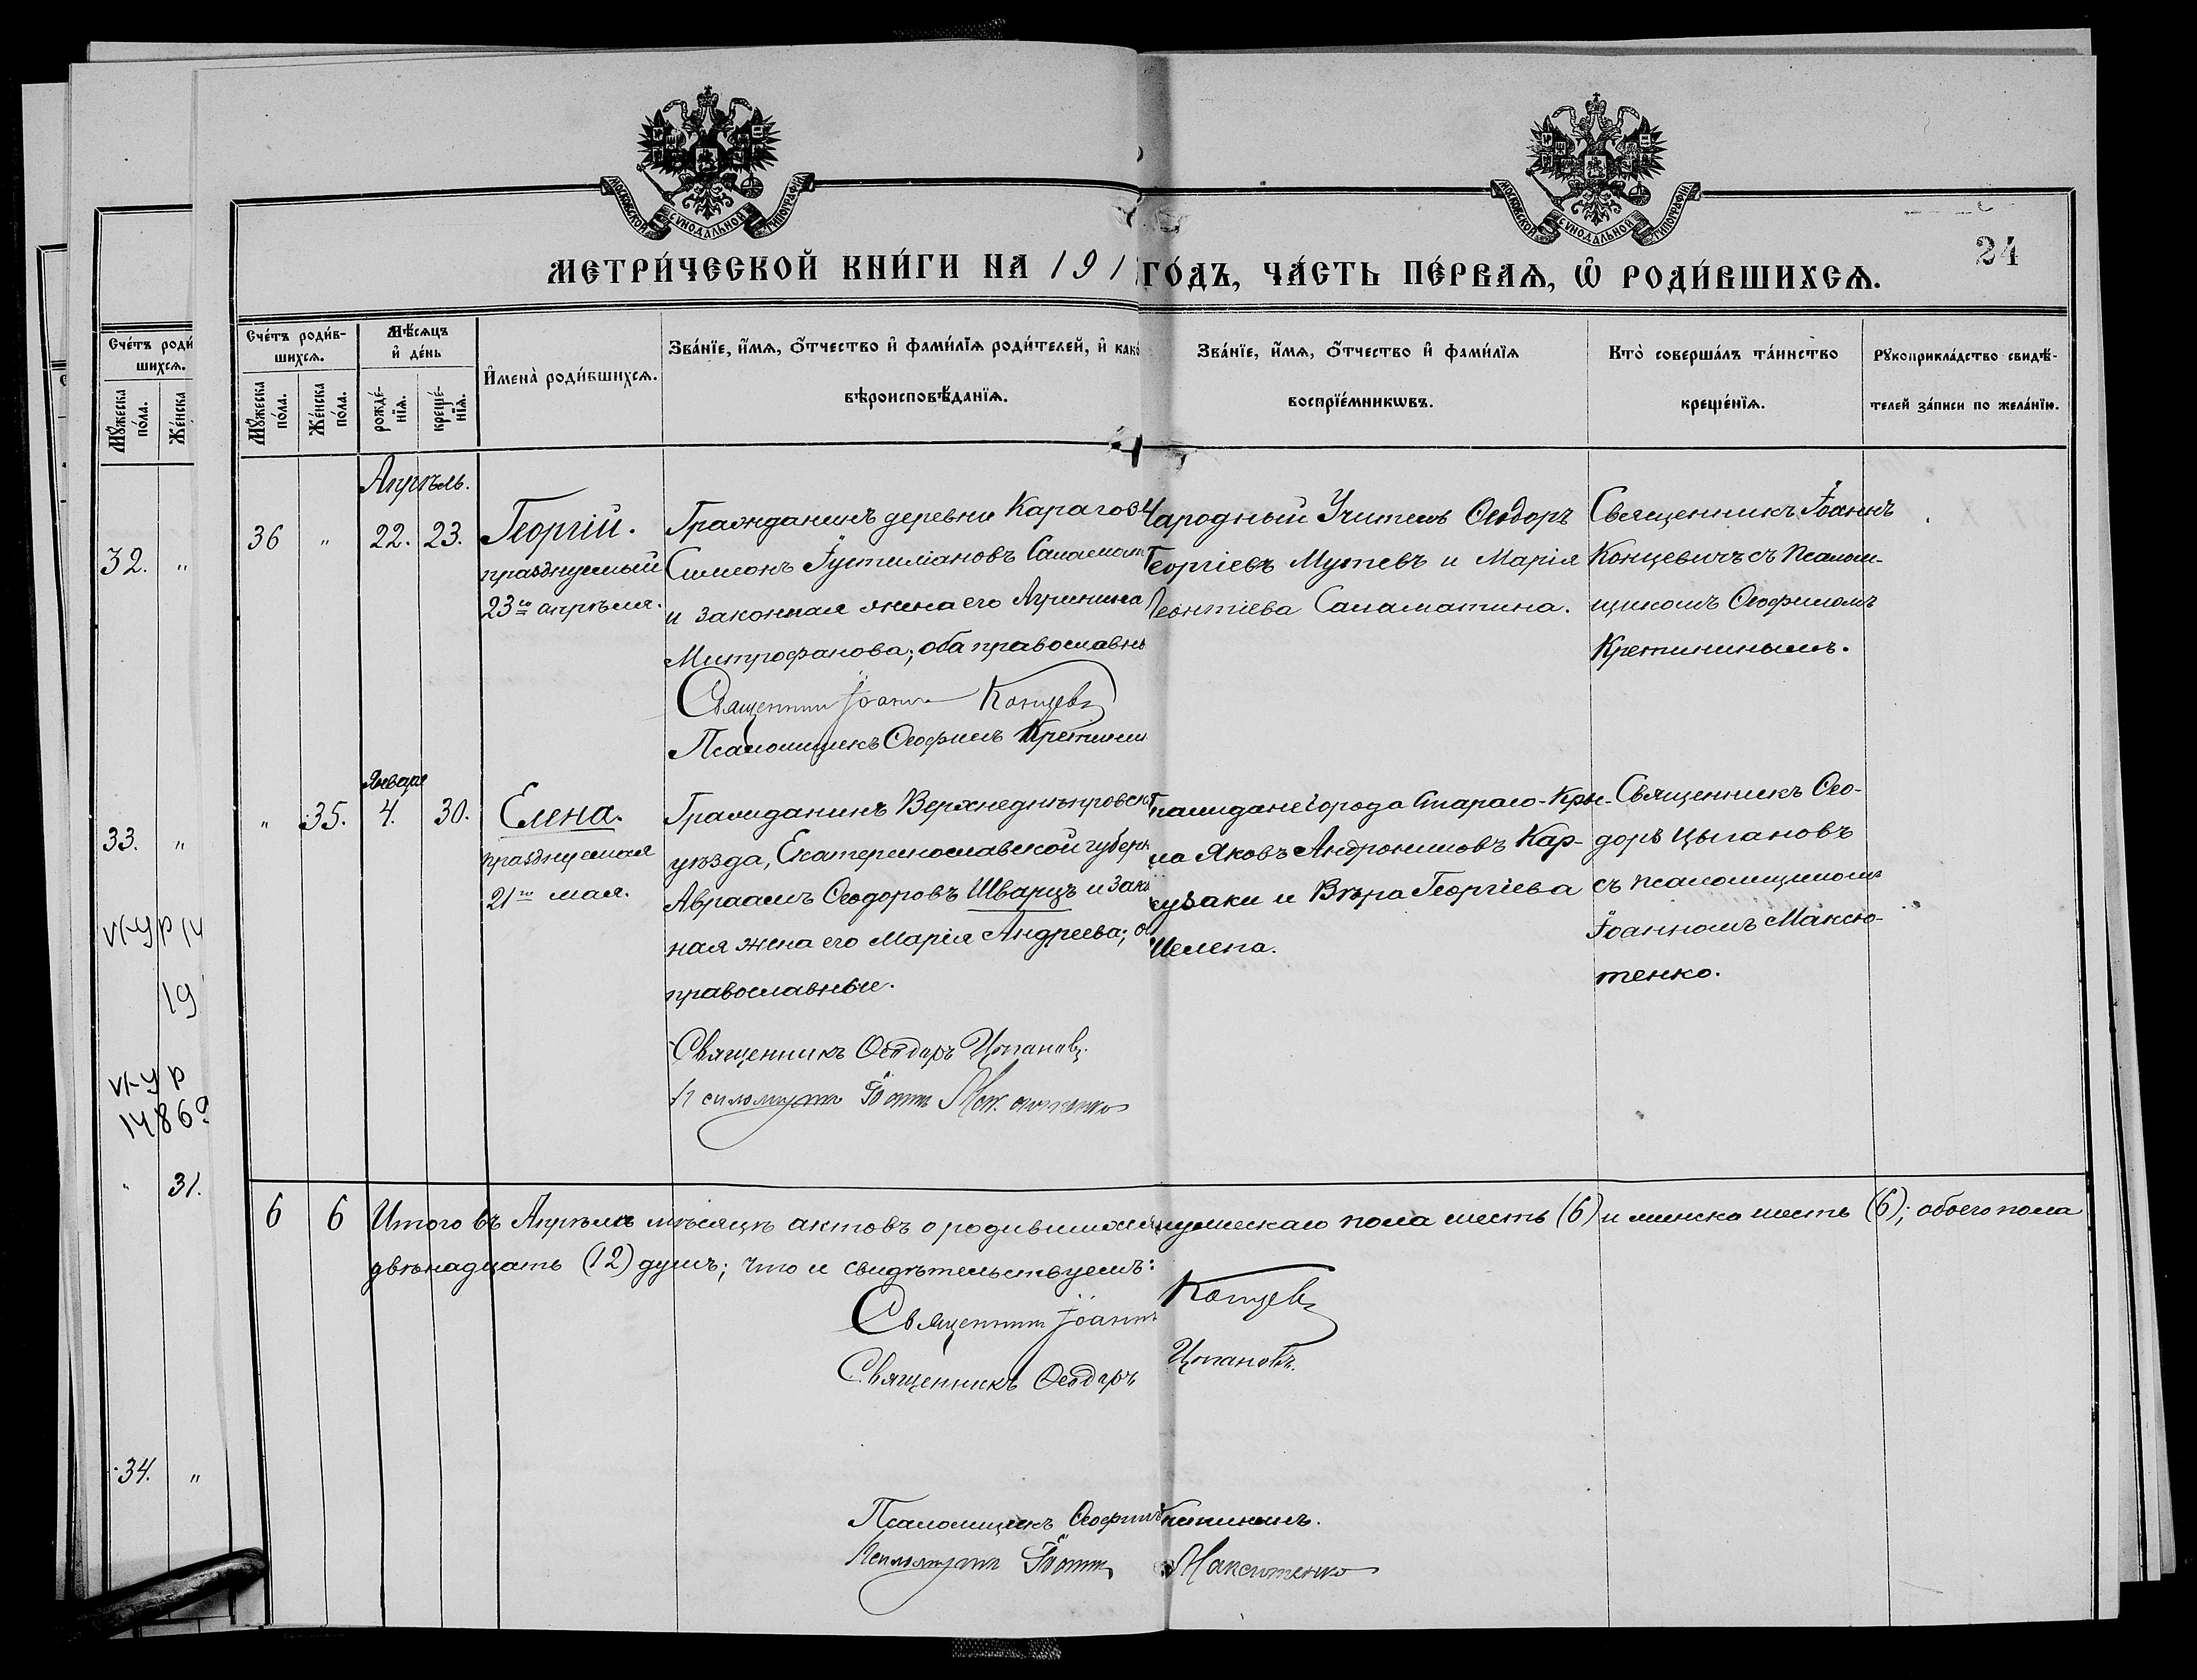 МОСКОВСКОЙ СѴНОДАЛЬНОЙ ТИПОГРАФІИ
МОСКОВСКОЙ СѴНОДАЛЬНОЙ ТИПОГРАФІИ
24
МЕТРИ́ЧЕСКОЙ КНИ́ГИ НА 191 ГО́ДЪ, ЧА́СТЬ ПЕ́РВАѦ, Ѡ҆ РОДИ́ВШИХСѦ.
Сче́тъ роди
шихсѧ.
Мꙋ́жеска по́ла.
Же́нска
Сче́тъ роди́в-
шихсѧ.
Мꙋ́жеска по́ла.
Же́нска по́ла.
Мѣ́сѧцъ
и҆ де́нь
рожде́-нїѧ.
креще́-нїѧ.
И҆мена̀ роди́вшихсѧ.
Зва́нїе, и҆́мѧ, ѻ҆́тчество и҆ фами́лїѧ роди́телей, и҆ како́
вѣроисповѣ́данїѧ.
Зва́нїе, и҆́мѧ, ѻ҆́тчество и҆ фами́лїѧ
воспрїе́мникѡвъ.
Кто̀ соверша́лъ та́инство
креще́нїѧ.
Рꙋкоприкла́дство свидѣ́-
телей за́писи по жела́нїю.
32. „
33. „
19
1486
„ 31.
34. „
Апрѣль.
36 „ 22. 23.
Георгій.
празднуемый
23го апрѣля.
Гражданинъ деревни Карагоз
Симеонъ Іустиніановъ Саламат
и законная жена его Агрипина
Митрофанова; оба православны
Священник Іоанн Концев
Псаломщикъ Ѳеофилъ Кретинин
Народный Учитель Ѳеодоръ
Георгіевъ Мутевъ и Марія
Леонтіева Саламатина.
Священникъ Іоаннъ
Концевичъ съ псалом-
щикомъ Ѳеофиломъ
Кретининымъ.
Января
„ 35. 4. 30.
Елена.
празднуемая
21го мая.
Гражданинъ Верхнеднѣпровск
уѣзда, Екатеринославской губерн
Авраамъ Ѳеодоровъ Шварцъ и зак
ная жена его Марія Андреева; о
православные.
Священникъ Ѳеодоръ Цыгановъ.
Псаломщик Іоанн Максютенко
Граждане города Стараго-Кры-
ма Яковъ Андрониковъ Кар-
сузаки и Вѣра Георгіева
Шелепа.
Священникъ Ѳео-
доръ Цыгановъ
съ псаломщикомъ
Іоанномъ Максю-
тенко.
6 6 Итого въ Апрѣлѣ мѣсяцѣ актовъ о родившихся мужескаго пола шесть (6) и женска шесть (6); обоего пола
двѣнадцать (12) душъ; что и свидѣтельствуемъ:
Священник Іоанн Концев
Священникъ Ѳеодоръ Цыгановъ.
Псаломщикъ Ѳеофилъ
Псаломщик Іоанн Максютенко